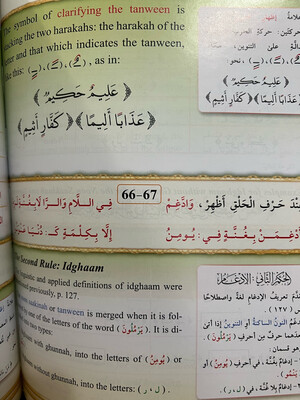 The symbol of clarifying the tanween is
stacking the two harakahs: the harakah of the
letter and that which indicates the tanween,
like this: (ــٌ), (ــً), (ــٍ), as in:
﴿عَلِيمٌ حَكِيمٌ﴾
﴿عَذَابًا أَلِيمًا﴾ ﴿كَفَّارٍ أَثِيمٍ﴾
علامة إظهار
حركتين: حركةِ الحرف
على التنوين،
نحو
﴿عَلِيمٌ حَكِيمٌ﴾
﴿عَذَابًا أَلِيمًا﴾ ﴿كَفَّارٍ أَثِيمٍ﴾
66-67
حَرْفِ الْحَلْقِ أَظْهِرْ، وَادَّغِمْ فِي اللَّامِ وَالرَّا لَا بِغُنَّةٍ
بِغُنَّةٍ فِي: يُومِنُ إِلَّا بِكِلْمَةٍ كَـ: دُنْيَا
Second Rule: Idghaam
and applied definitions of idghaam were
previously, p. 127.
saakinah or tanween is merged when it is fol-
by one of the letters of the word (يَرْمَلُونَ). It is di-
two types:
with ghunnah, into the letters of (يُومِنُ) or
without ghunnah, into the letters: (ل ، ر).
الحكم الثاني: الإدغام
تعريفُ الإدغامِ لغةً واصطلاحًا
(١٢٧).
النونُ الساكنةُ أو التنوينُ إذا أتى
بعدهما حرفٌ من أحرف (يَرْمَلُونَ).
وهو قسمان:
إدغامٌ بغنّة، في أحرف (يُومِنُ) أو
(يَنْمُو).
إدغامٌ بلا غُنّة، في (ل ، ر).